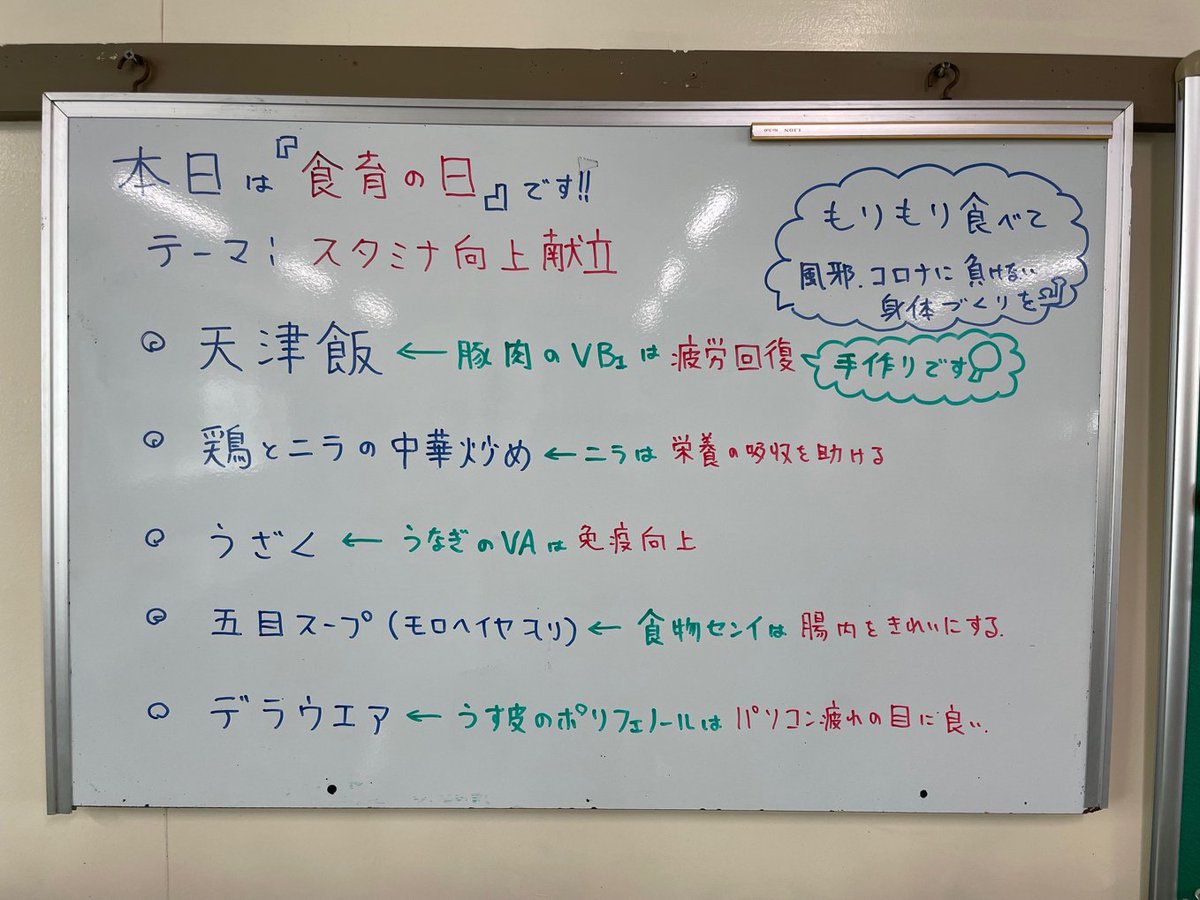 本日は『食育の日』です!!
テーマ: スタミナ向上献立
もりもり食べて
風邪.コロナに負けない
身体づくりを
天津飯 ← 豚肉のVB1は疲労回復
手作りです
鶏とニラの中華炒め ← ニラは栄養の吸収を助ける
うざく ← うなぎのVAは免疫向上
五目スープ(モロヘイヤ入り) ← 食物センイは腸内をきれいにする.
デラウエア ← うす皮のポリフェノールはパソコン疲れの目に良い.
LION